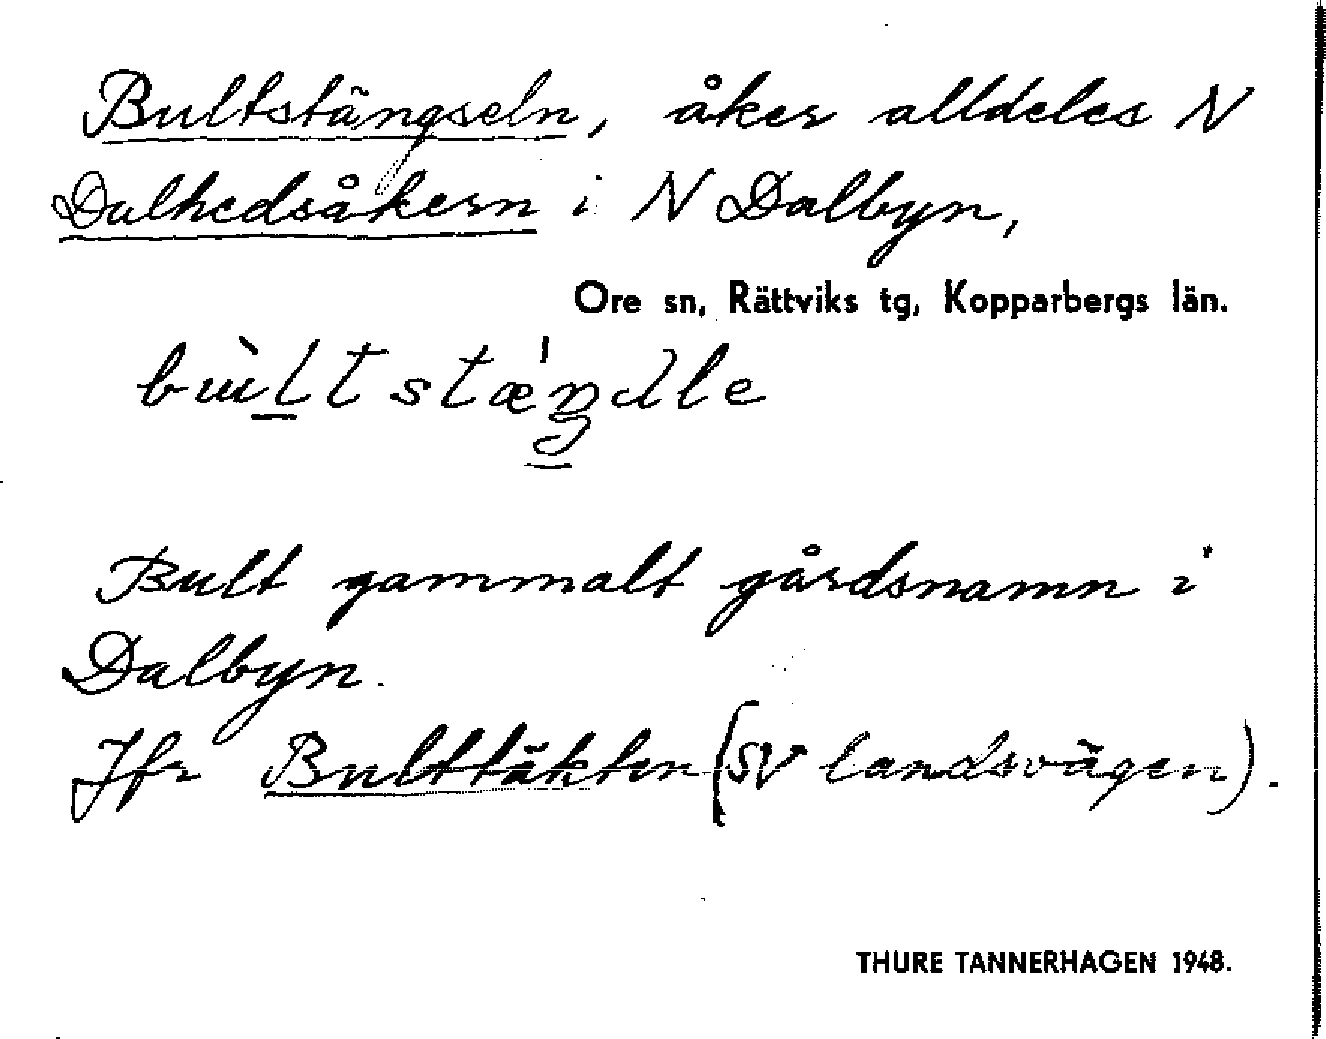 Bultstängseln, åker alldeles N
Dalhedsåkern i N Dalbyn,
Ore sn, Rättviks tg, Kopparbergs län.
Bult gammalt gårdsnamn i
Dalbyn.
Jfr Bulttäkten (SV landsvägen).
THURE TANNERHAGEN 1948.